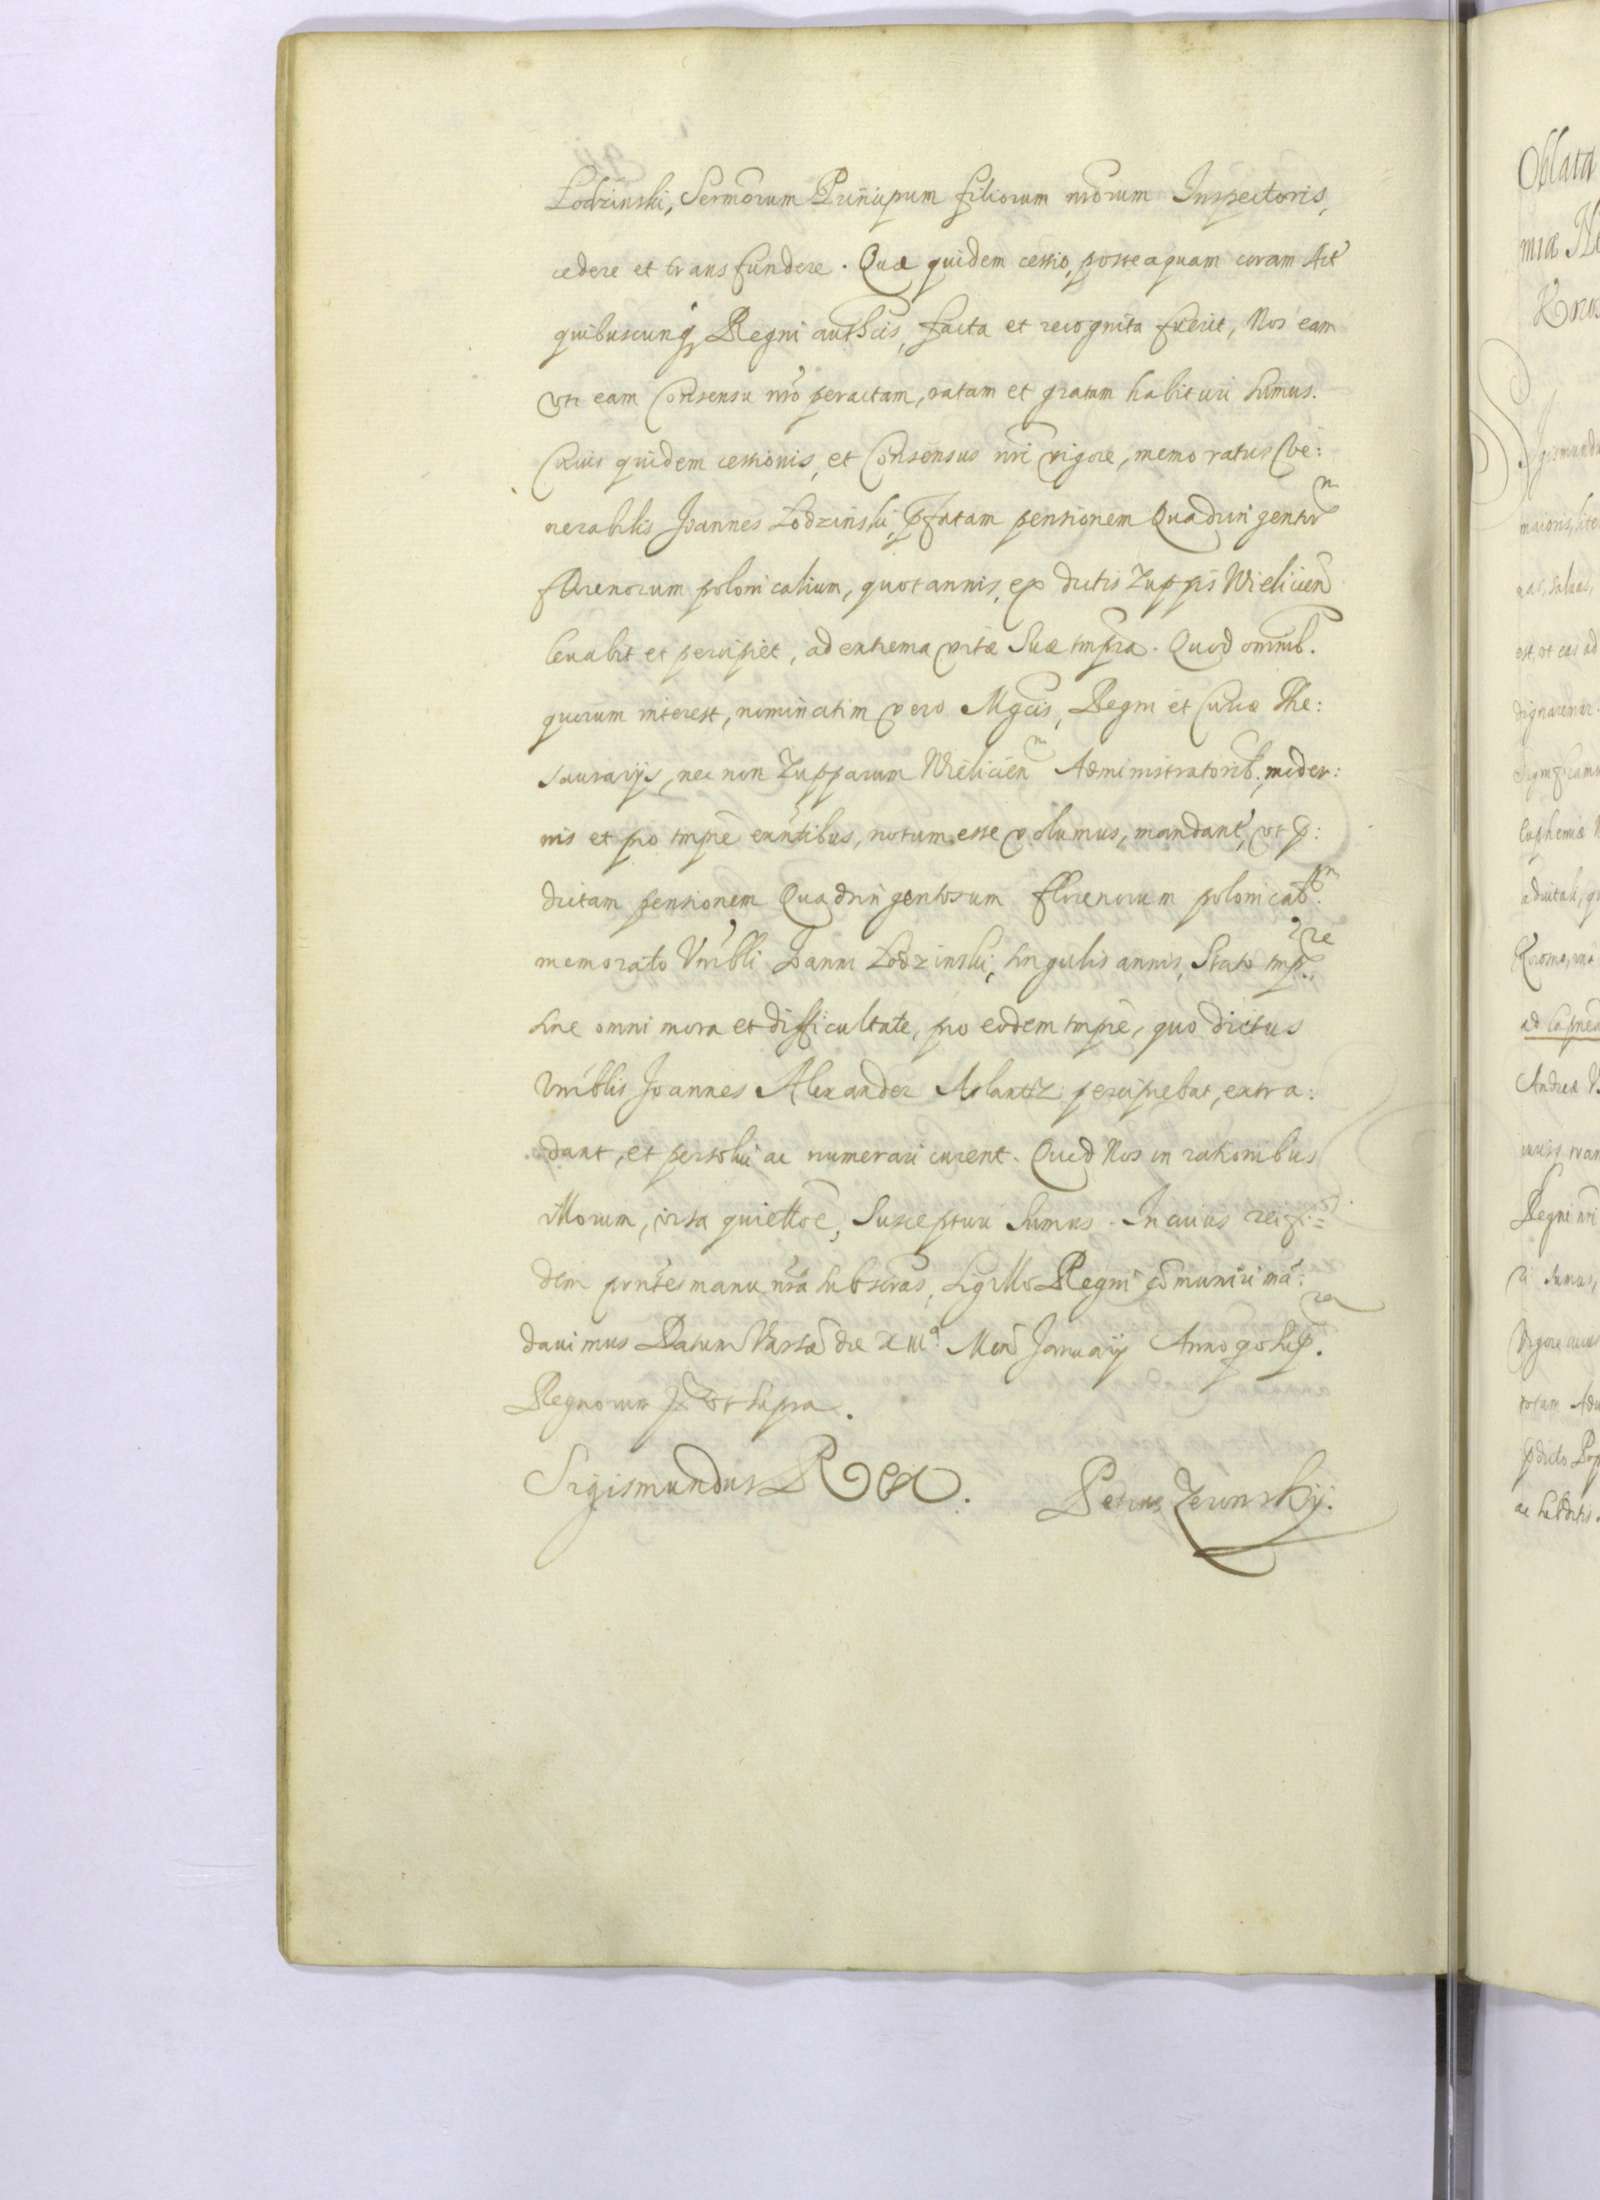 Lodzinski, Sermorum Principum filiorum nrorum Inspectoris,
cedere et transfundere. Quæ quidem cessio, posteaquam coram Act
quibuscunq Regni authcis, facta et recognita fuerit, Nos eam
vti eam Consensu nro peractam, ratam et gratam habituri sumus.
Cuius quidem cessionis, et Consensus nri vigore, memoratus Ve:
nerabilis Joannes Lodzinski, pfatam pensionem Quadringentor
florenorum polonicalium, quotannis, ex dictis Zuppis Wielicien
leuabit et percipiet, ad extrema vitæ suæ tmpra. Quod omnib.
quorum interest, nominatim vero Mgcis, Regni et Curiæ The:
saurarijs, nec non Zupparum Wielicien Administratorib. moder:
nis et pro tmpre exntibus, notum esse volumus, mandant, vt p:
dictam pensionem Quadringentorum florenorum polonical.
memorato Vnrbli Joanni Lodzinski, singulis annis, Stato tmp.
sine omni mora et difficultate, pro eodem tmpre, quo dictus
Vnrblis Joannes Alexander percipiebat, extra:
dant, et persolui ac numerari curent. Quod Nos in rationibus
illorum, suscepturi sumus. In cuius rei fi=
dem pnntes manu nra subscras, sigillo Regni cõmuniri mã:
dauimus Datum Varsa die Men January Anno
Regnorum vt supra.
Sigismundus Rex. Petrus Zeronskij.
Oblata
miæ